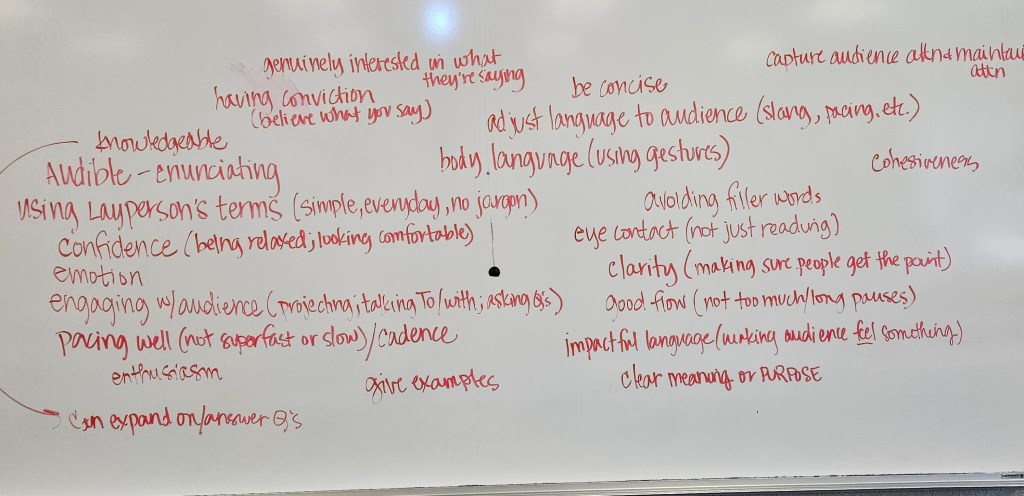 genuinely interested in what
they're saying
capture audience attn & maintain
attn
having conviction
(believe what you say)
be concise
adjust language to audience (slang, pacing, etc.)
knowledgeable
body language (using gestures)
cohesiveness
Audible - enunciating
using Layperson's terms (simple, everyday, no jargon)
avoiding filler words
confidence (being relaxed; looking comfortable)
eye contact (not just reading)
emotion
clarity (making sure people get the point)
engaging w/audience (projecting; talking To/with; asking Q's)
good flow (not too much/long pauses)
pacing well (not superfast or slow)/cadence
impactful language (making audience feel something)
enthusiasm
give examples
clear meaning or PURPOSE
can expand on/answer Q's